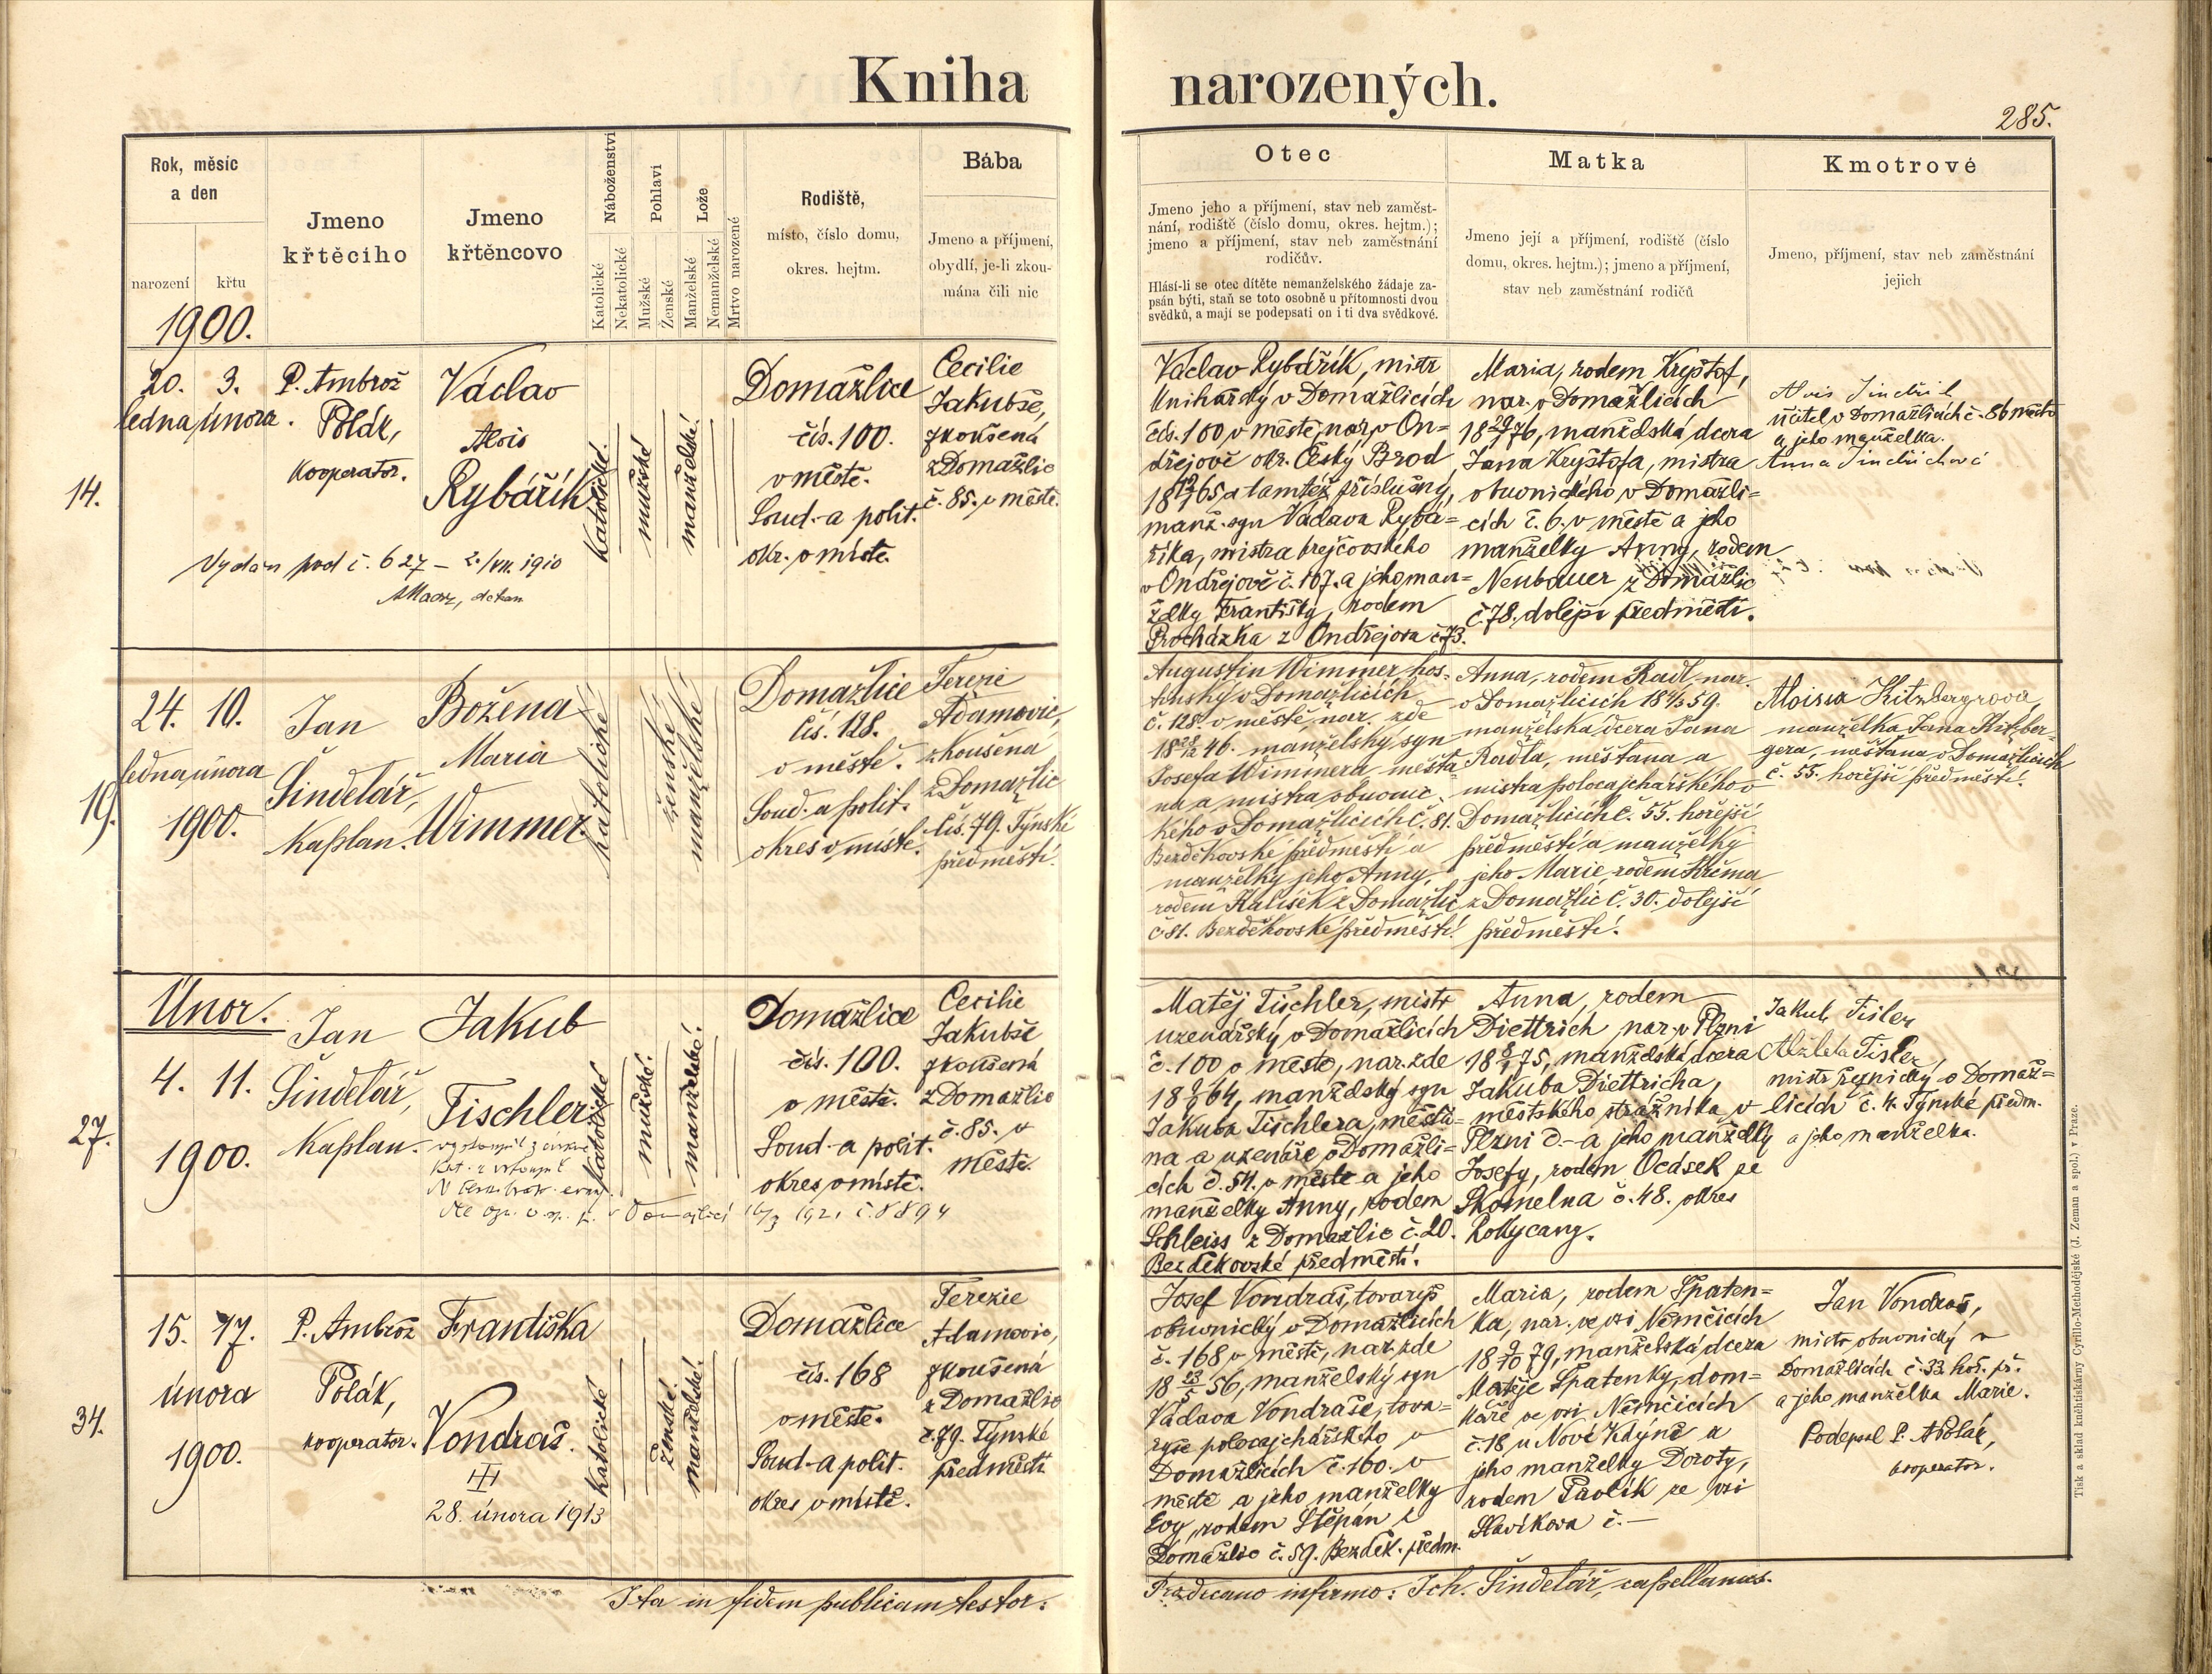 Kniha narozených.
285.
Rok, měsíc
a den
narození
křtu
1900.
Jmeno
křtěcího
Jmeno
křtěncovo
Náboženství
Katolické
Nekatolické
Pohlaví
Mužské
Ženské
Lože
Manželské
Nemanželské
Mrtvo narozené
Rodiště,
místo, číslo domu,
okres. hejtm.
Bába
Jmeno a příjmení,
obydlí, je-li zkou-
mána čili nic
Otec
Jmeno jeho a příjmení, stav neb zaměst-
nání, rodiště (číslo domu, okres. hejtm.);
jmeno a příjmení, stav neb zaměstnání
rodičův.
Hlásí-li se otec dítěte nemanželského žádaje za-
psán býti, staň se toto osobně u přítomnosti dvou
svědků, a mají se podepsati on i ti dva svědkové.
Matka
Jmeno její a příjmení, rodiště (číslo
domu, okres. hejtm.); jmeno a příjmení,
stav neb zaměstnání rodičů
Kmotrové
Jmeno, příjmení, stav neb zaměstnání
jejich
14.
20. 3.
ledna února.
P. Ambrož
Polák,
kooperator.
Václav
Alois
Rybářík
Vydán pod č. 627 – 2./VII. 1910
děkan
katolické.
mužské
manželské.
Domažlice
čís. 100.
v městě.
Soud- a polit.
okr. v místě.
Cecilie
Jakubše,
zkoušená
z Domažlic
č. 85. v městě.
Václav Rybářík, mistr
knihařský v Domažlicích
čís. 100 v městě, nar. v On=
dřejově okr. Český Brod
65 a tamtéž příslušný,
manž. syn Václava Rybá=
říka, mistra krejčovského
v Ondřejově č. 107. a jeho man=
želky Františky, rodem
Procházka z Ondřejova č. 73.
Maria, rodem Kryštof,
nar. v Domažlicích
76, manželská dcera
Jana Kryštofa, mistra
obuvnického v Domažli=
cích č. 6. v městě a jeho
manželky Anny, rodem
Neubauer z Domažlic
č. 78. dolejší předměstí.
Alois Jindřich,
učitel v Domažlicích č. 86 město
a jeho manželka.
Anna Jindřichová
19.
24. 10.
ledna února
1900.
Jan
Šindelář,
kaplan.
Božena
Maria
Wimmer.
katolické
ženské
manželské
Domažlice
Čís. 128.
v městě.
Soud- a polit.
okres v místě.
Terezie
Adamovic,
zkoušená
z Domažlic
čís. 79. Týnské
předměstí.
Augustin Wimmer, hos=
tinský v Domažlicích
č. 128 v městě, nar. zde
18 28/12 46. manželský syn
Josefa Wimmera měšťa=
na a mistra obuvnic=
kého v Domažlicích č. 81.
Bezděkovské předměstí a
manželky jeho Anny,
rodem Kalíšek z Domažlic
č 81. Bezděkovské předměstí.
Anna, rodem Radl, nar.
v Domažlicích 18 4/3 59.
manželská dcera Jana
Radla, měšťana a
mistra polocajchářského v
Domažlicích č. 55. hořejší
předměstí a manželky
jeho Marie, rodem Krčma
z Domažlic č. 30. dolejší
předměstí.
Aloisia Kitzbergrová,
manželka Jana Kitzber=
gera, měšťana v Domažlicích
č. 55. hořejší předměstí.
27.
Únor.
4. 11.
1900.
Jan
Šindelář,
kaplan.
Jakub
Tischler
vystoupil z církve
Domažlicích č. 8894
katolické
mužské.
manželské.
Domažlice
čís. 100.
v městě.
Soud- a polit.
okres v místě.
Cecilie
Jakubše
zkoušená
z Domažlic
č. 85. v
městě.
Matěj Tischler, mistr
uzenářský v Domažlicích
č. 100 v městě, nar. zde
64, manželský syn
Jakuba Tischlera, měšťa=
na a uzenáře v Domažli=
cích č. 54. v městě a jeho
manželky Anny, rodem
Schleiss z Domažlic č. 20.
Bezděkovské předměstí.
Anna, rodem
Diettrich nar. v Plzni
75, manželská dcera
Jakuba Diettricha,
městského strážníka v
Plzni č.– a jeho manželky
Josefy, rodem Ocásek ze
Skomelna č. 48. okres
Rokycany.
Jakub Tišler
Alžběta Tišler
mistr řeznický v Domaž=
licích č. 4. Týnské předm.
a jeho manželka.
34.
15. 17.
února
1900.
P. Ambrož
Polák,
kooperator.
Františka
Vondraš.
28. února 1913
katolické
ženské.
manželské.
Domažlice
čís. 168
v městě.
Soud- a polit.
okres v místě.
Terezie
Adamovic,
zkoušená
z Domažlic
č. 79. Týnské
předměstí
Josef Vondraš, tovaryš
obuvnický v Domažlicích
č. 168 v městě, nar. zde
18 23/5 56, manželský syn
Václava Vondraše, tova=
ryše polocajchářského v
Domažlicích č. 160. v
městě a jeho manželky
Evy, rodem Štěpán z
Domažlic č. 59. Bezděk. předm.
Maria, rodem Špaten=
ka, nar. ve vsi Němčicích
18 9/10 79, manželská dcera
Matěje Špatenky, dom=
káře ve vsi Němčicích
č. 18 u Nové Kdýně a
jeho manželky Doroty,
rodem Pavlík ze vsi
Slavíkova č. –
Jan Vondraš,
mistr obuvnický v
Domažlicích č. 33 hoř. př.
a jeho manželka Marie.
Podepsal P. A Polák,
kooperator.
Ita in fidem publicam testor:
Pro decano infirmo: Joh. Šindelář, capellanus.
Tisk a sklad knihtiskárny Cyrillo-Methodějské (J. Zeman a spol.) v Praze.